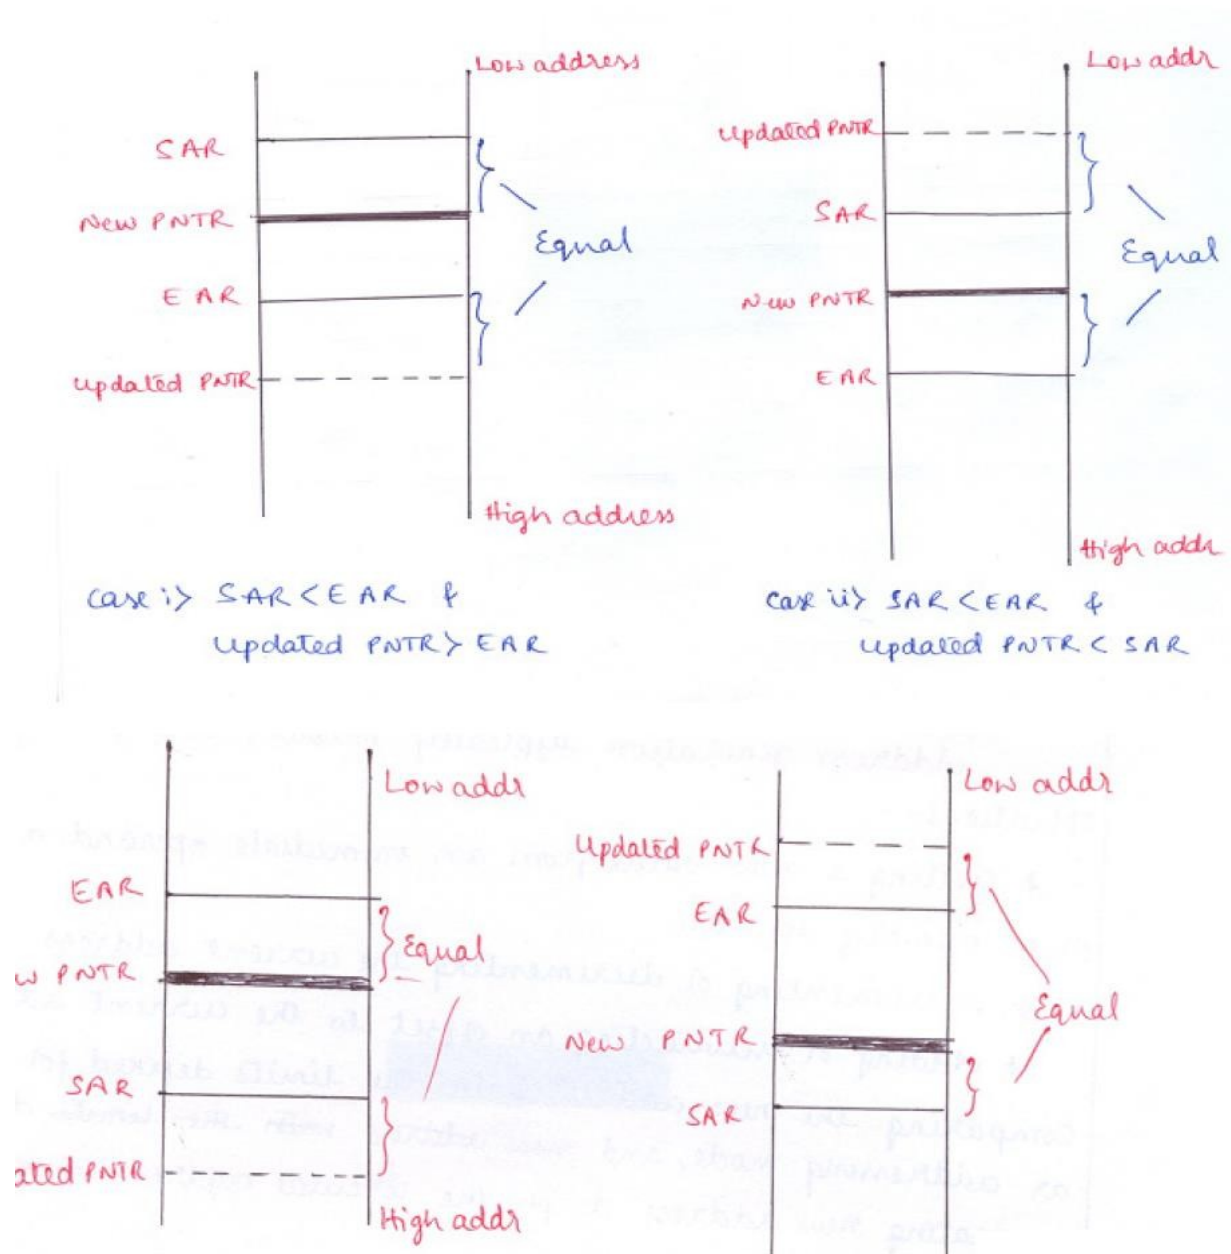 Low address
SAR
New PNTR
Equal
EAR
Updated PNTR
High address
Case i> SAR < EAR &
Updated PNTR > EAR
Low addr
Updated PNTR
SAR
Equal
New PNTR
EAR
High addr
Case ii> SAR < EAR &
Updated PNTR < SAR
Low addr
EAR
Equal
w PNTR
SAR
ated PNTR
High addr
Low addr
Updated PNTR
EAR
New PNTR
Equal
SAR